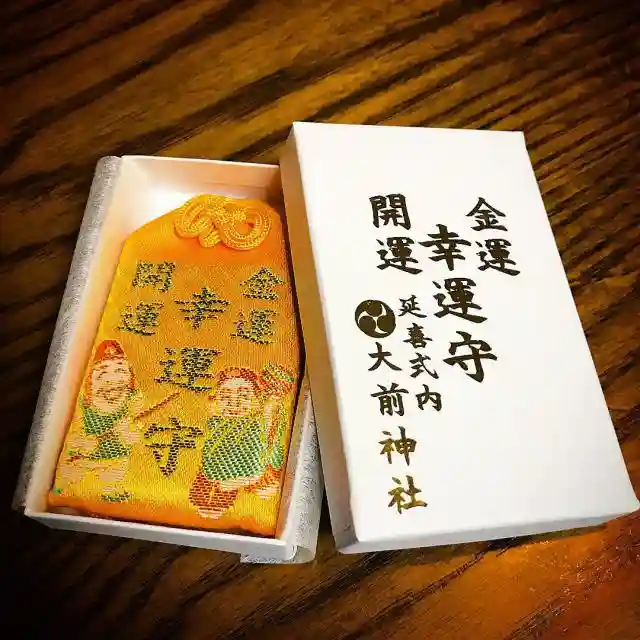 金運
幸運守
開運
金運
幸運守
開運
延喜式内
大前神社